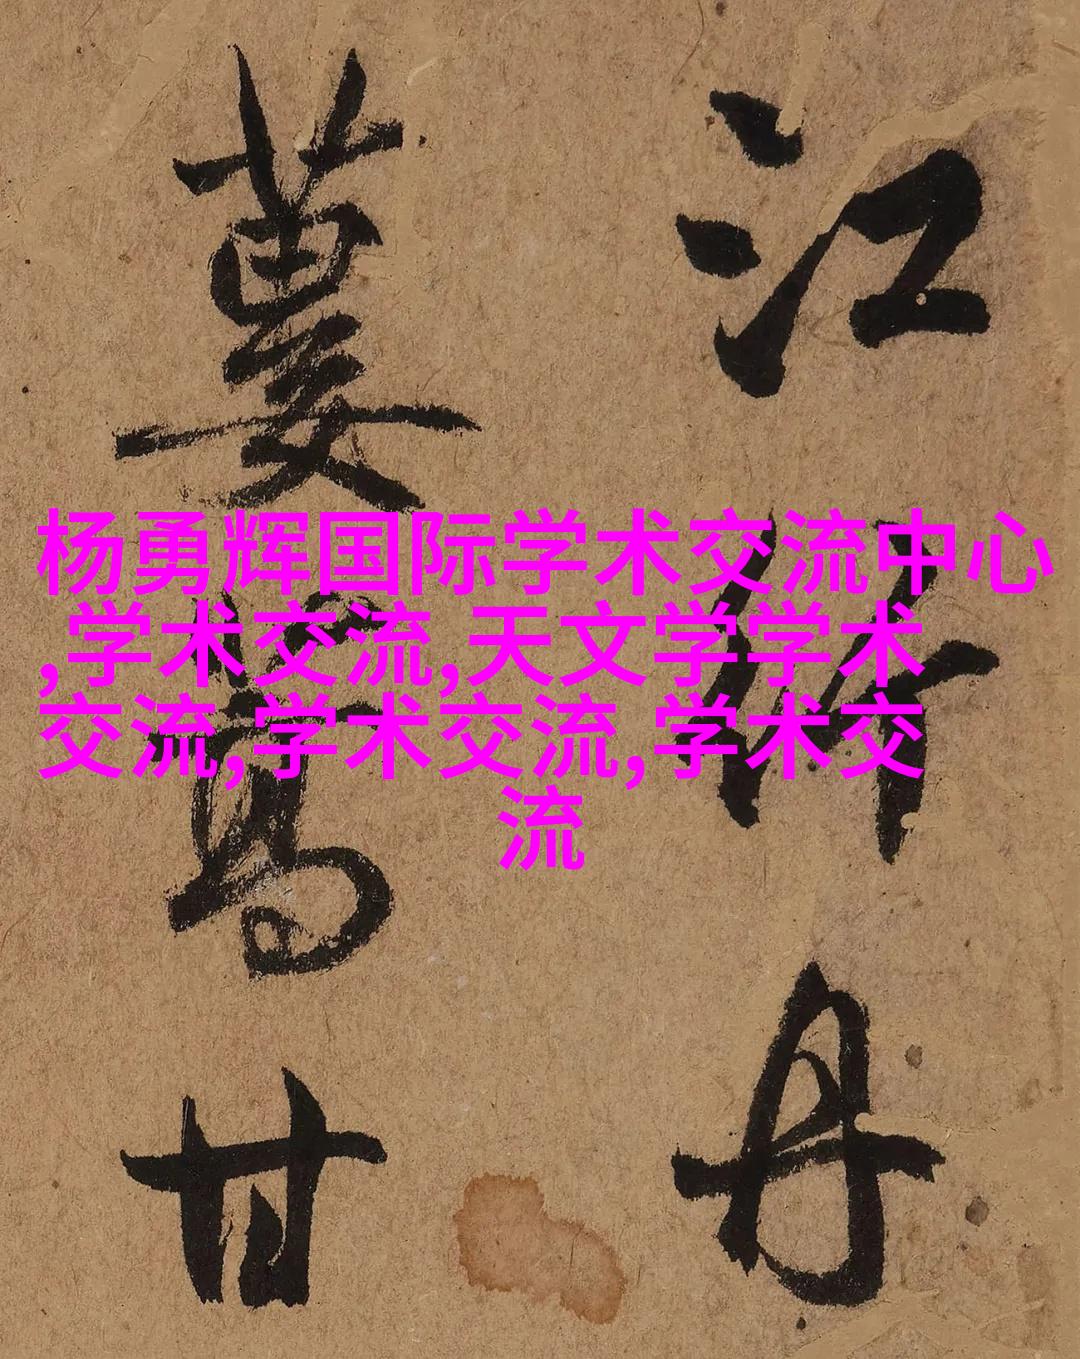 杨勇辉国际学术交流中心
,学术交流,天文学学术
交流,学术交流,学术交
流
江丹
甘